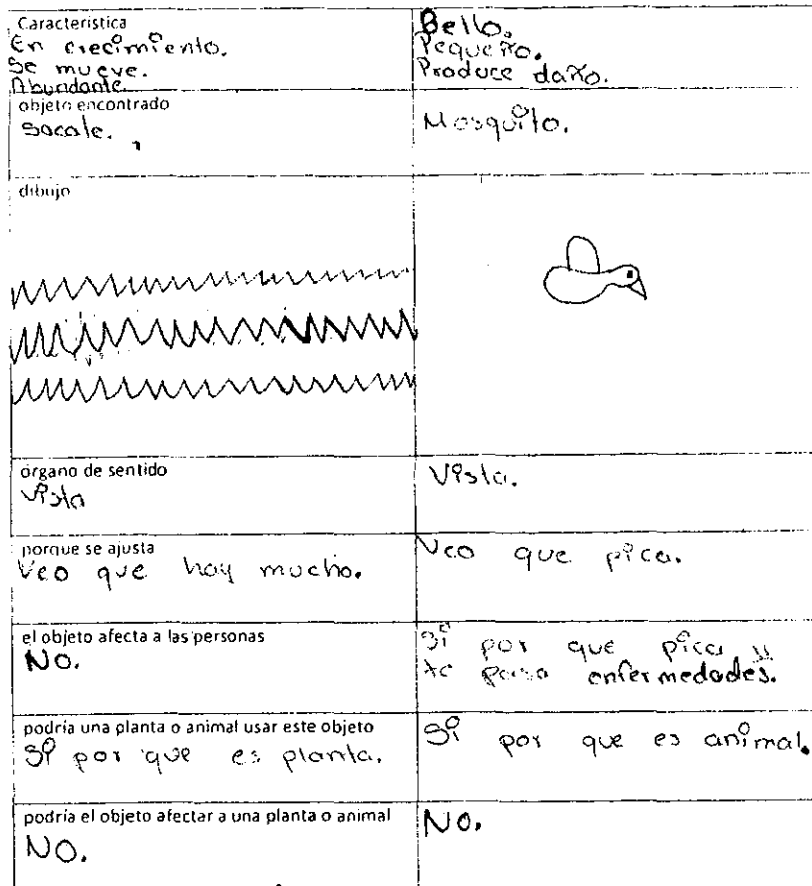 Característica
En crecimiento.
Se mueve.
Abundante.
Bello.
Pequeño.
Produce daño.
objeto encontrado
Sacate.
Mosquito.
dibujo
órgano de sentido
Vista
Vista.
porque se ajusta
Veo que hay mucho.
Veo que pica.
el objeto afecta a las personas
No.
Si por que pica y
te pasa enfermedades.
podría una planta o animal usar este objeto
Si por que es planta.
Si por que es animal.
podría el objeto afectar a una planta o animal
No.
No.